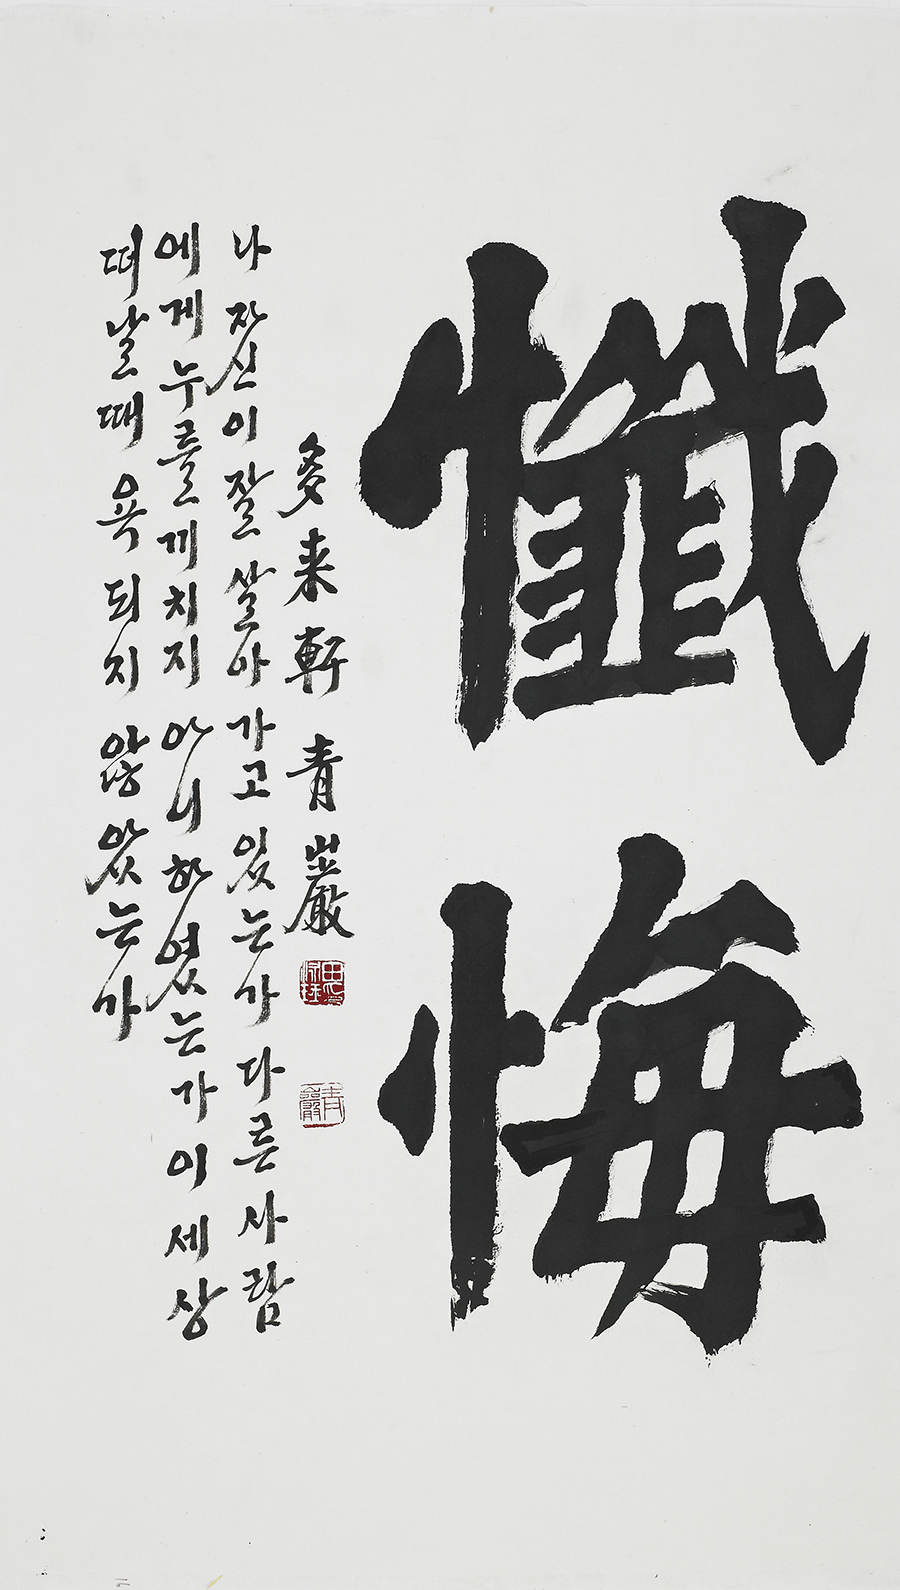 懺悔
多来軒 青巖
青巖
나 자신이 잘 살아 가고 있는가 다른 사람
에게 누를 끼치지 아니 하였는가 이 세상
떠날때 욕되지 않았는가